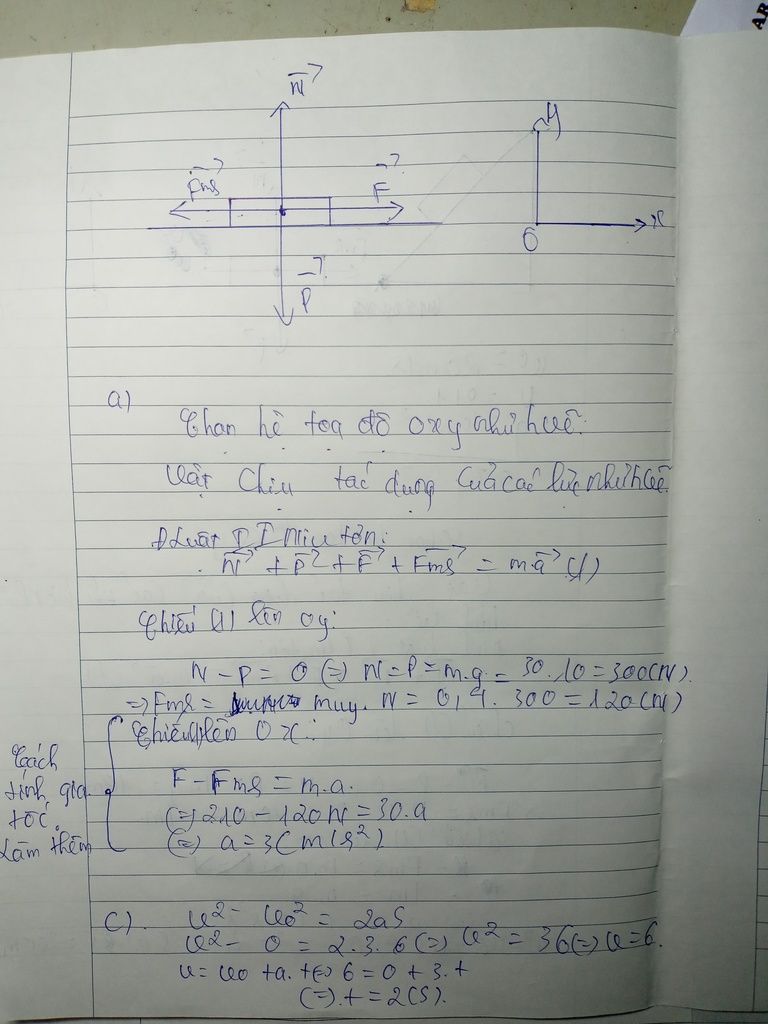 N
y
Fms
F
x
O
P
a)
Chọn hệ tọa độ oxy như hvẽ.
Vật chịu tác dụng của các lực như hvẽ
Đluật II Niu tơn:
N + P + F + Fms = m.a (1)
Chiếu (1) lên oy:
N - P = 0 (=) N = P = m.g = 30.10 = 300(N).
=> Fms = muy. N = 0,4. 300 = 120(N)
Chiếu (1) lên Ox:
Cách
tính gia
tốc.
Làm thêm
F - Fms = m.a.
(=) 210 - 120N = 30.a
(=) a = 3(m/s²)
c).
v² - vo² = 2aS
v² - 0 = 2.3.6 (=) v² = 36 (=) v = 6.
v = vo + a.t (=) 6 = 0 + 3.t
(=) t = 2(s).